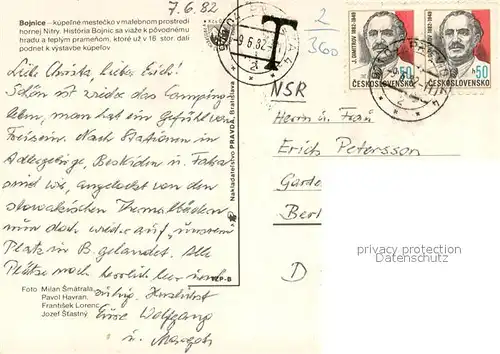 7.6.82
Bojnice – kúpeľné mestečko v malebnom prostredí
hornej Nitry. História Bojnic sa viaže k pôvodnému
hradu a teplým prameňom, ktoré už v 16 stor. dali
podnet k výstavbe kúpeľov
Liebe Christa, lieber Erich!
Schön ist wieder das Camping-
leben, man hat ein Gefühl von
Freisein. Nach Stationen in
Adlergebirge, Beskiden u. Fatra
sind wir, angelockt von den
slowakischen Thermalbädern
nun doch wieder auf unserem
Platz in B. gelandet. Alle
Plätze noch herrlich leer und
ruhig. Herzlichst
Eure Wolfgang
u.
Foto Milan Šmátrala,
Pavol Havran,
František Lorenc,
Jozef Šťastný
VZP-B
Nakladateľstvo PRAVDA, Bratislava
T
2
360
-9.6.82
J. DIMITROV 1882-1949
50h
ČESKOSLOVENSKO
J. DIMITROV 1882-1949
50h
ČESKOSLOVENSKO
NSR
Herrn u. Frau
Erich Petersson
Garde
Berl
D
privates Angebot
Datenschutz